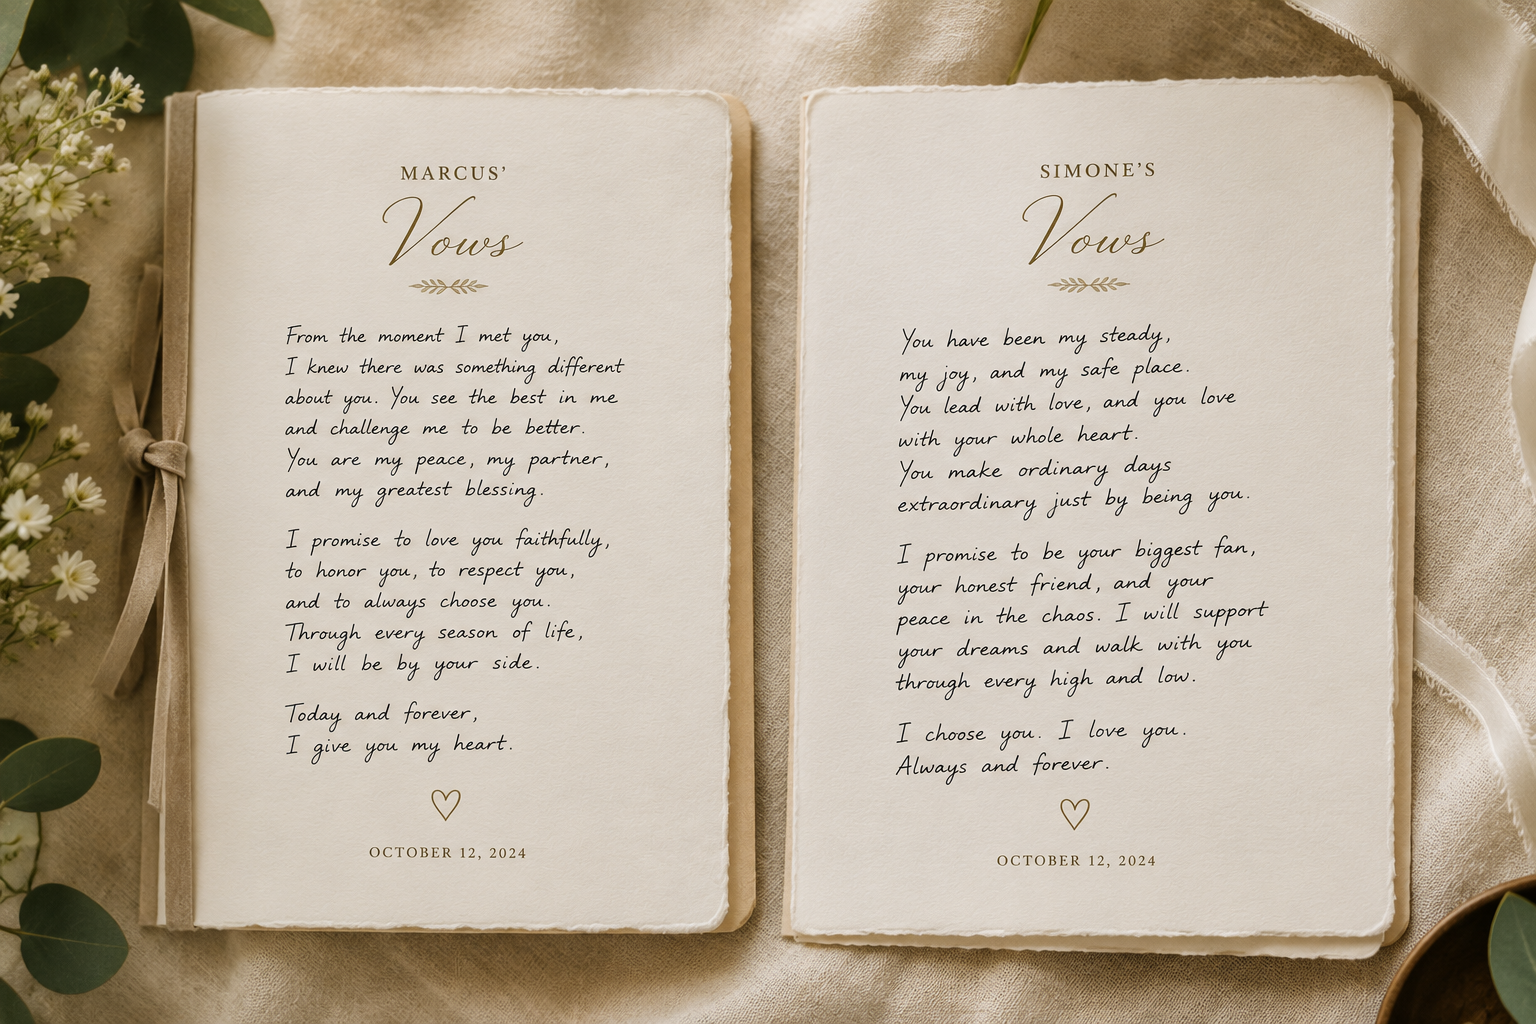 MARCUS’
Vows
From the moment I met you,
I knew there was something different
about you. You see the best in me
and challenge me to be better.
You are my peace, my partner,
and my greatest blessing.
I promise to love you faithfully,
to honor you, to respect you,
and to always choose you.
Through every season of life,
I will be by your side.
Today and forever,
I give you my heart.
OCTOBER 12, 2024
SIMONE’S
Vows
You have been my steady,
my joy, and my safe place.
You lead with love, and you love
with your whole heart.
You make ordinary days
extraordinary just by being you.
I promise to be your biggest fan,
your honest friend, and your
peace in the chaos. I will support
your dreams and walk with you
through every high and low.
I choose you. I love you.
Always and forever.
OCTOBER 12, 2024